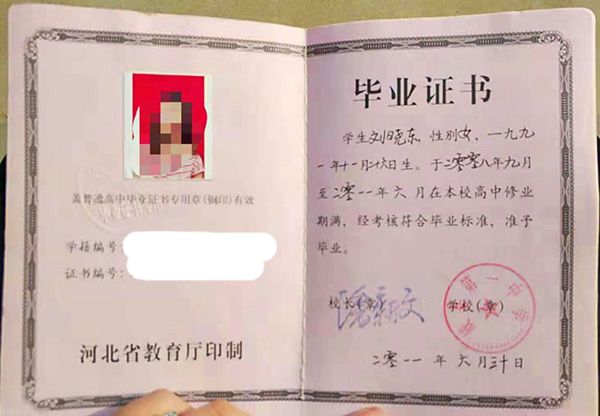 盖普通高中毕业证书专用章(钢印)有效
学籍编号:
证书编号:
河北省教育厅印制
毕业证书
学生刘晓东, 性别女, 一九九
一年十一月廿六日生。于二零零八年九月
至二零一一年六月在本校高中修业
期满,经考核符合毕业标准,准予
毕业。
校长(章)
学校(章)
第一中学
二零一一年六月三十日